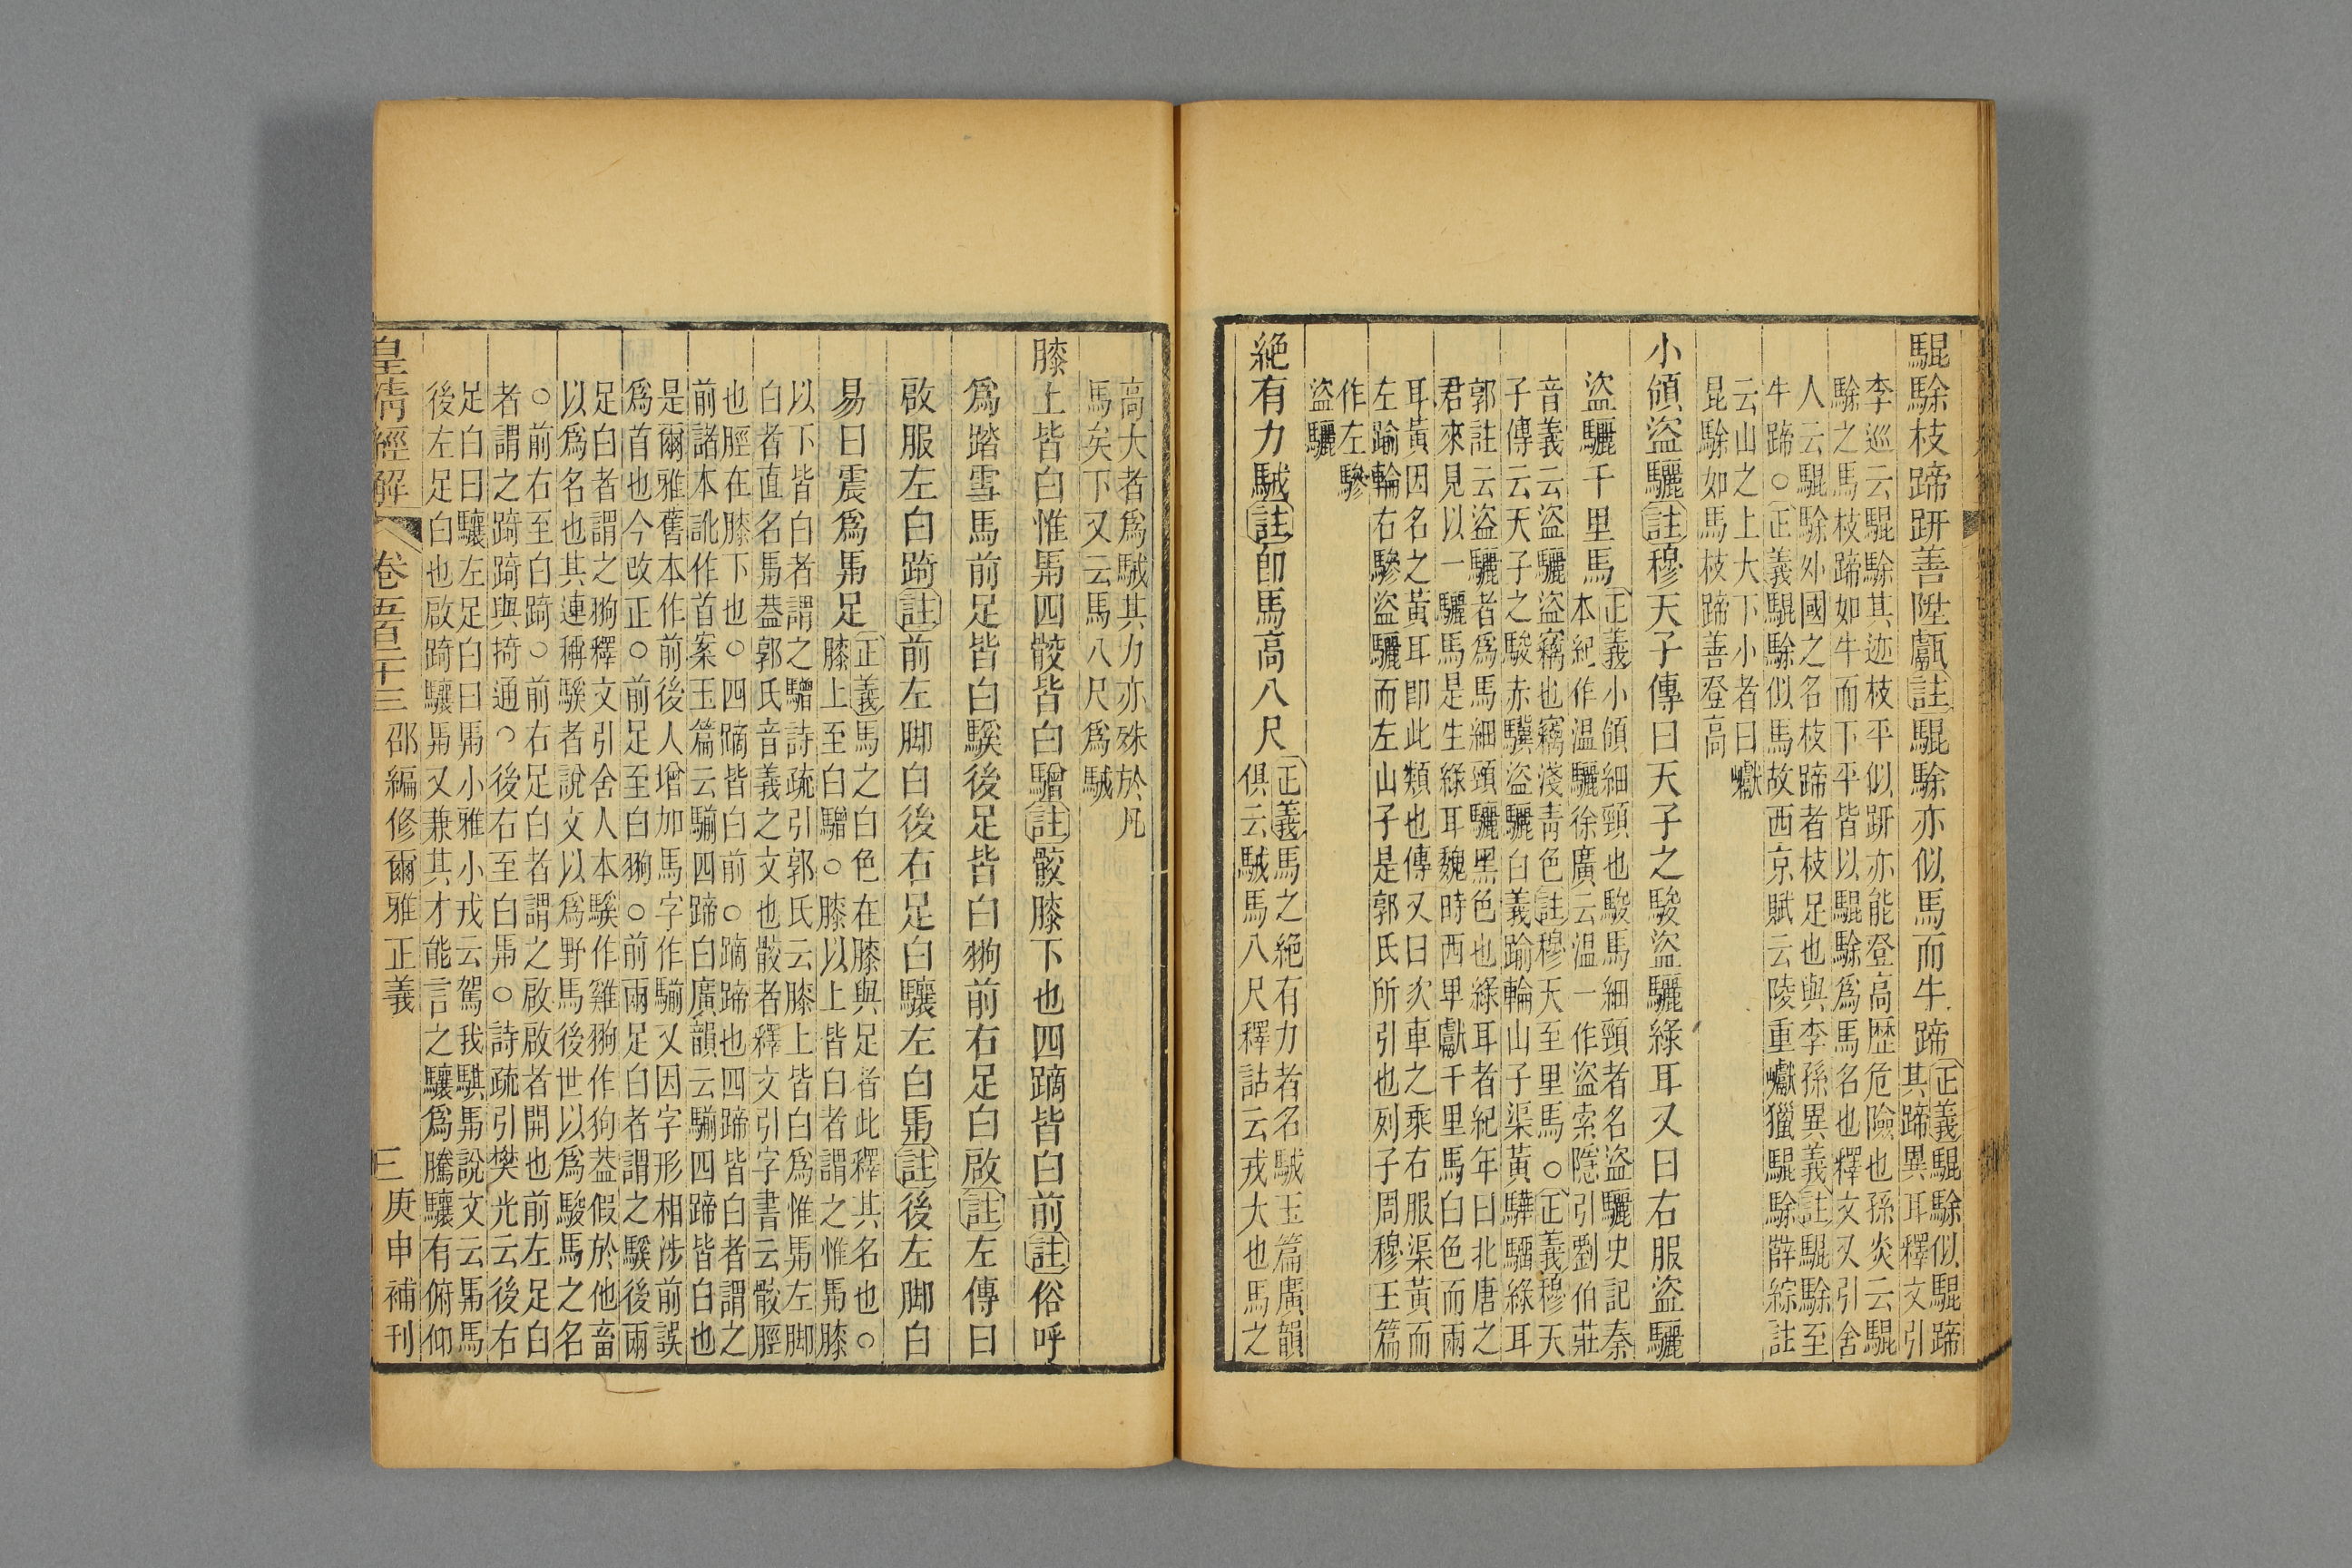 騉駼枝蹄趼善陞甗註騉駼亦似馬而牛蹄正義騉駼似騉蹄
其蹄異耳釋文引
李巡云騉駼其迹枝平似趼亦能登高歴危險也孫炎云騉
駼之馬枝蹄如牛而下平皆以騉駼爲馬名也釋文又引舍
人云騉駼外國之名枝蹄者枝足也與李孫異義註騉駼至
牛蹄○正義騉駼似馬故西京賦云陵重巘獵騉駼薛綜註
云山之上大下小者曰巘
昆駼如馬枝蹄善登高
小領盜驪註穆天子傳曰天子之駿盜驪綠耳又曰右服盜驪
盜驪千里馬正義小領細頸也駿馬細頸者名盜驪史記秦
本紀作温驪徐廣云温一作盜索隱引劉伯莊
音義云盜驪盜竊也竊淺青色註穆天至里馬○正義穆天
子傳云天子之駿赤驥盜驪白義踰輪山子渠黃驊騮綠耳
郭註云盜驪者爲馬細頸驪黑色也綠耳者紀年曰北唐之
君來見以一驪馬是生綠耳魏時西卑獻千里馬白色而兩
耳黃因名之黃耳卽此類也傳又曰次車之乘右服渠黃而
左踰輪右驂盜驪而左山子是郭氏所引也列子周穆王篇
作左驂
盜驪
絶有力駥註卽馬高八尺正義馬之絶有力者名駥玉篇廣韻
俱云駥馬八尺釋詁云戎大也馬之
高大者爲駥其力亦殊於凡
馬矣下又云馬八尺爲駥
膝上皆白惟馵四骹皆白驓註骹膝下也四蹢皆白前註俗呼
爲踏雪馬前足皆白騱後足皆白翑前右足白啟註左傳曰
啟服左白踦註前左脚白後右足白驤左白馵註後左脚白
易曰震爲馵足正義馬之白色在膝與足者此釋其名也○
膝上至白驓○膝以上皆白者謂之惟馵膝
以下皆白者謂之驓詩疏引郭氏云膝上皆白爲惟馵左脚
白者直名馵葢郭氏音義之文也骹者釋文引字書云骹脛
也脛在膝下也○四蹢皆白前○蹢蹄也四蹄皆白者謂之
前諸本訛作首案玉篇云騚四蹄白廣韻云騚四蹄皆白也
是爾雅舊本作前後人增加馬字作騚又因字形相涉前誤
爲首也今改正○前足至白翑○前兩足白者謂之騱後兩
足白者謂之翑釋文引舍人本騱作雞翑作狗葢假於他畜
以爲名也其連稱騱者說文以爲野馬後世以爲駿馬之名
○前右至白踦○前右足白者謂之啟啟者開也前左足白
者謂之踦踦與掎通○後右至白馵○詩疏引樊光云後右
足白曰驤左足白曰馵小雅小戎云駕我騏馵說文云馵馬
後左足白也啟踦驤馵又兼其才能言之驤爲騰驤有俯仰
皇清經解 卷五百二十三 邵編修爾雅正義 三 庚申補刊